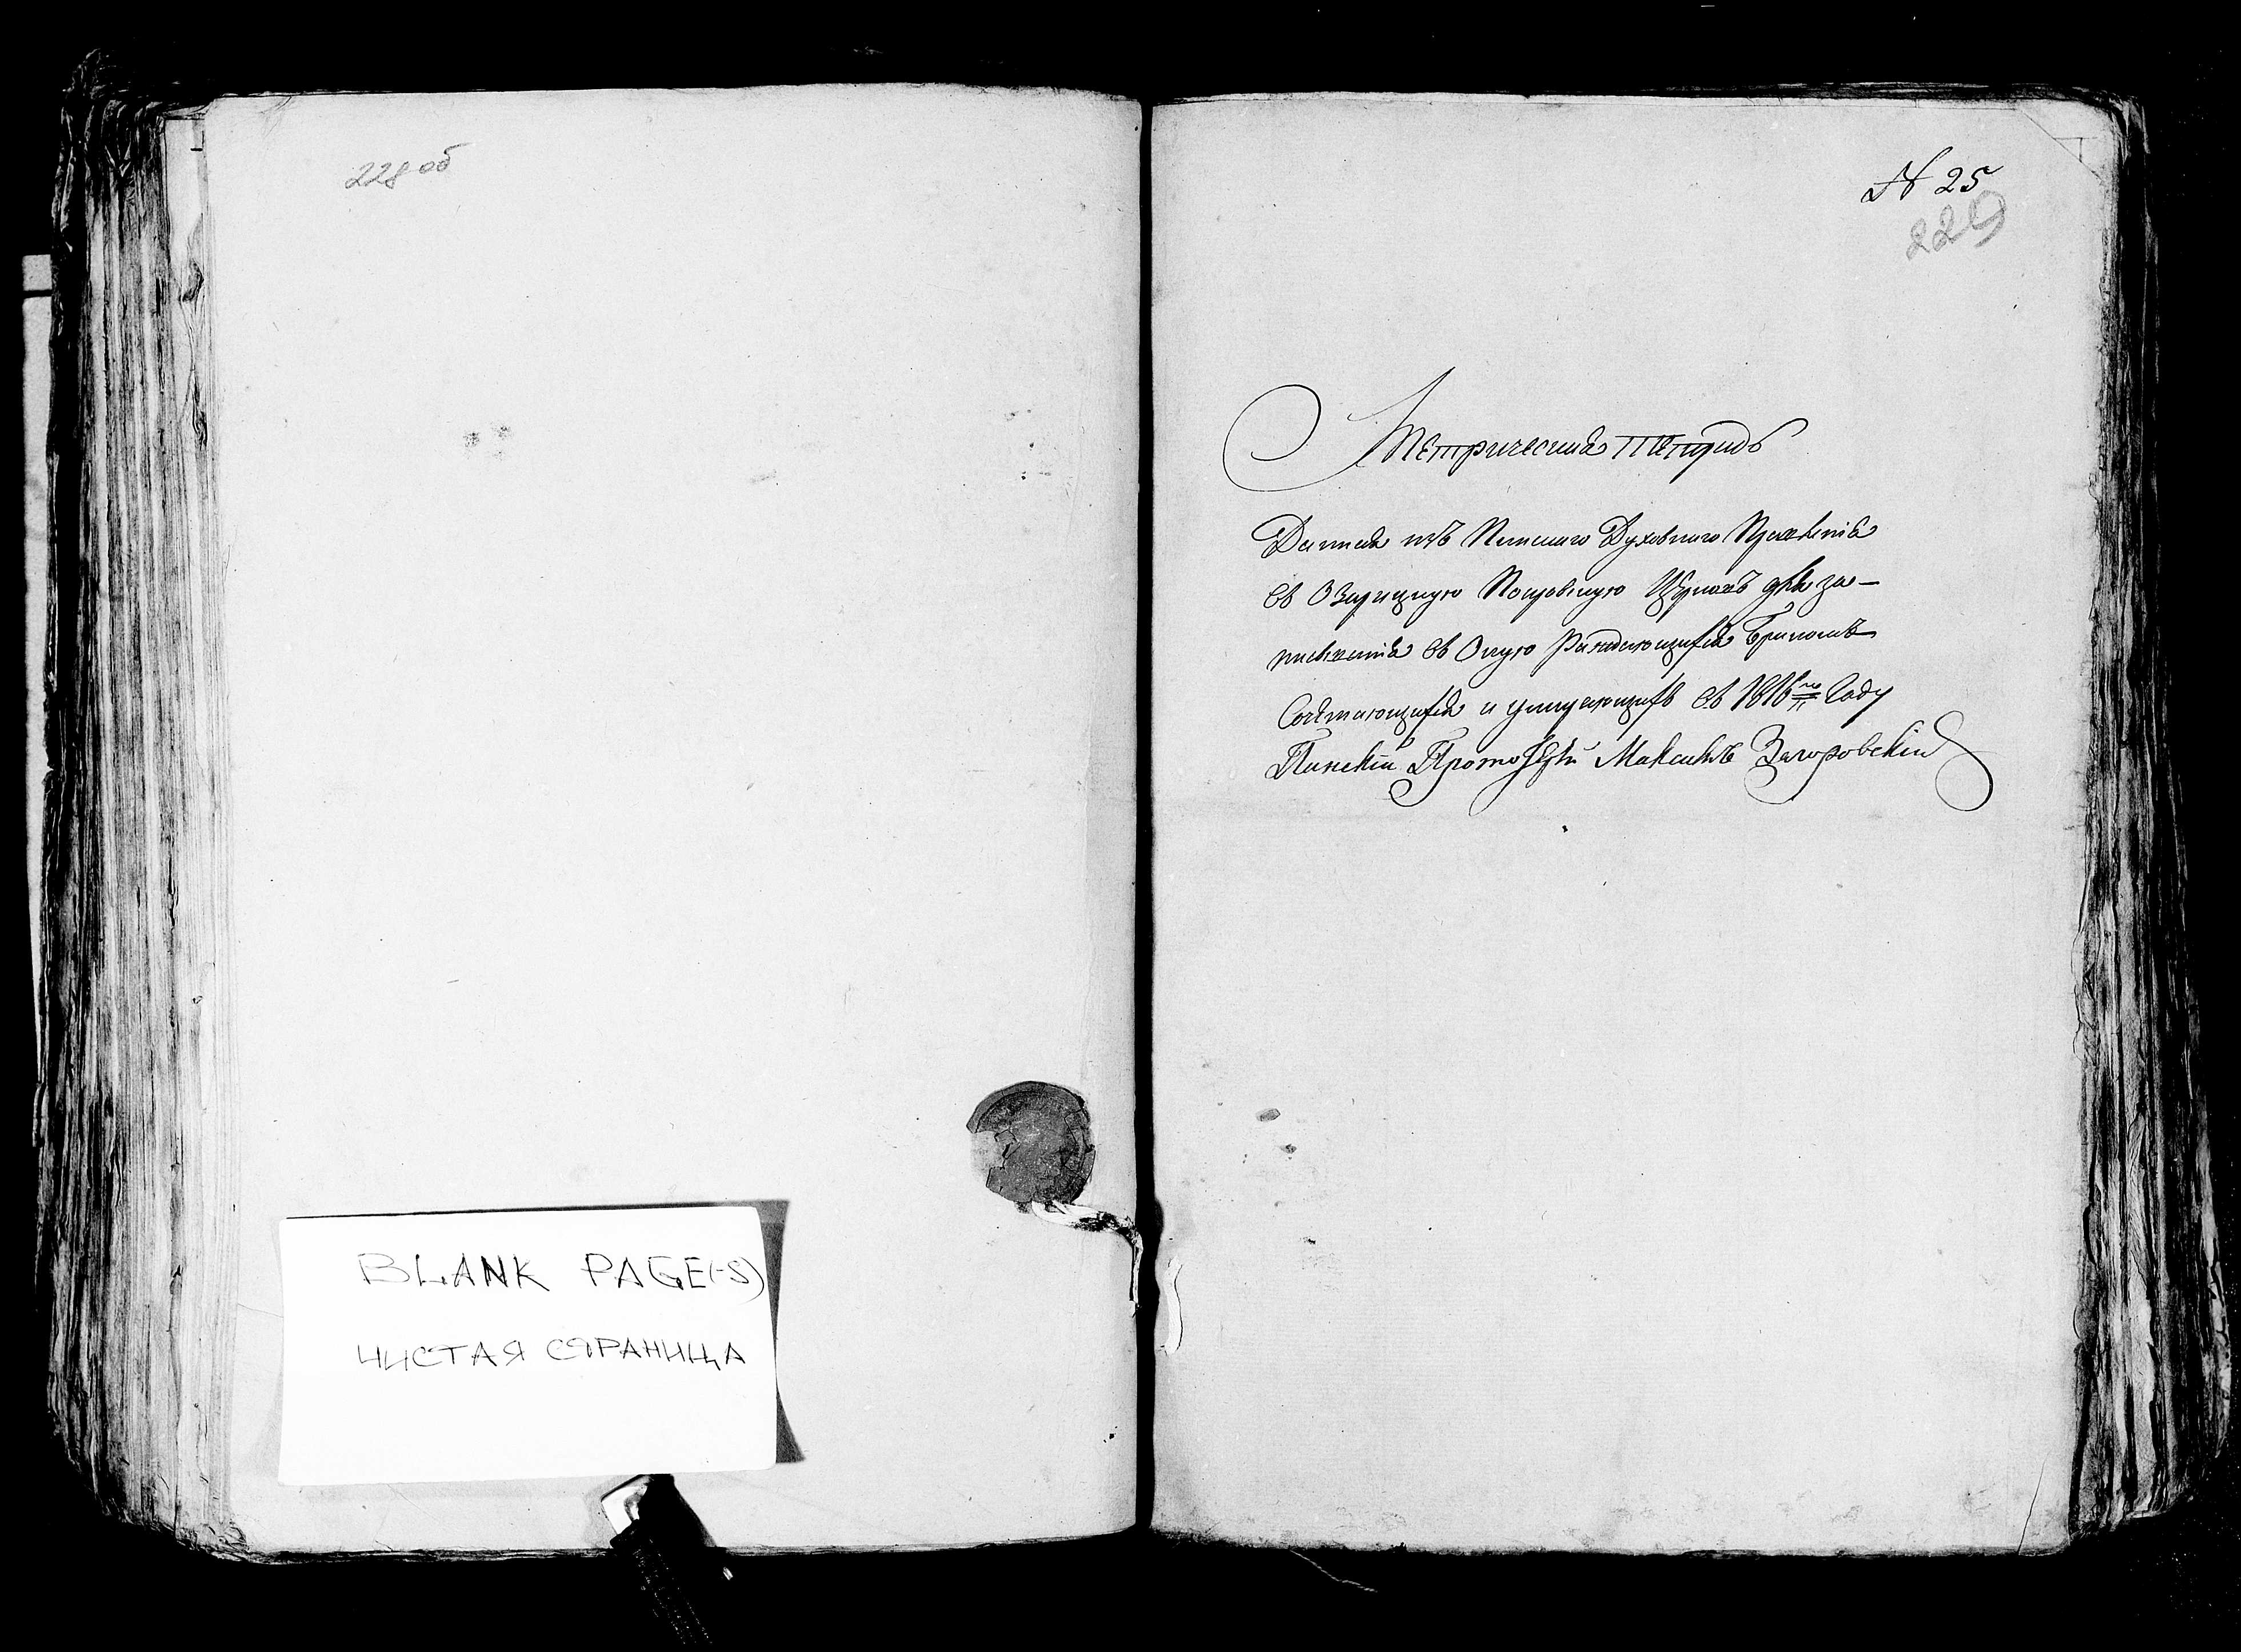 228 об
BLANK PAGE(-S)
ЧИСТАЯ СТРАНИЦА
№ 25
229
Метрическая тетрадь
Данная изъ Пинскаго Духовнаго Правленія
въ Озарицкую Покровскую Церковь для за-
писыванія въ Оную Раждающихся Бракомъ
Сочетающихся и умирающихъ въ 1816го Году
Пинскій Протоіерей Максимъ Загоровскій